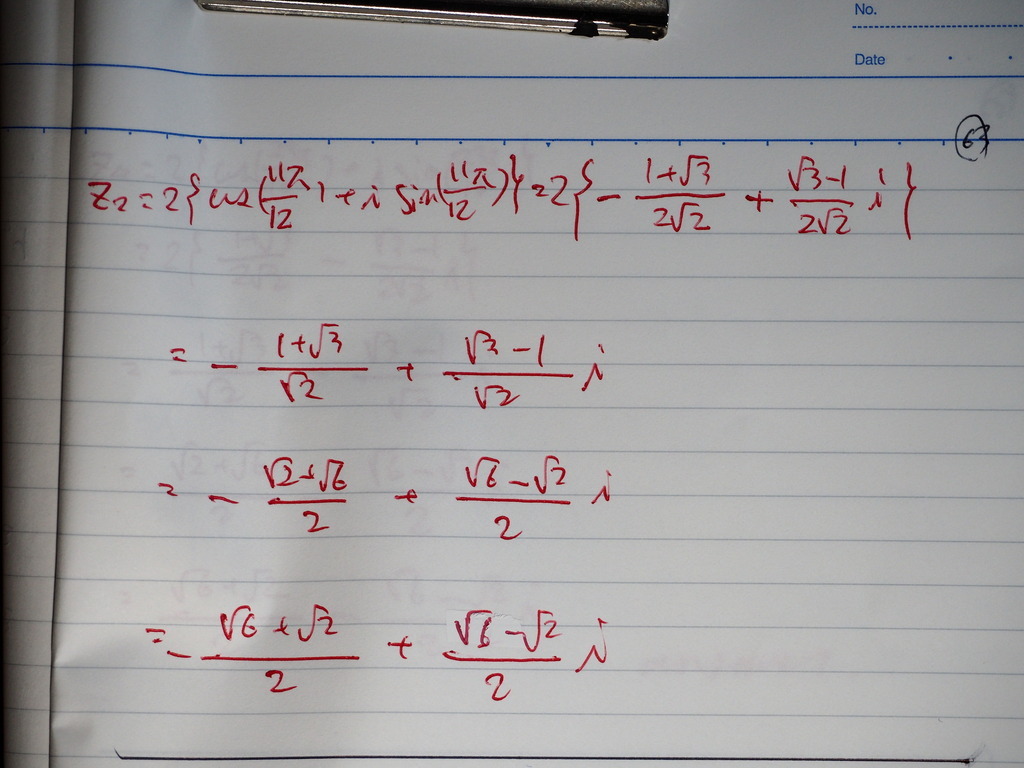 No.
Date
z₂ = 2{cos(11π/12) + i sin(11π/12)} = 2{- (1+√3)/(2√2) + (√3-1)/(2√2) i}
= - (1+√3)/√2 + (√3-1)/√2 i
= - (√2+√6)/2 + (√6-√2)/2 i
= - (√6+√2)/2 + (√6-√2)/2 i